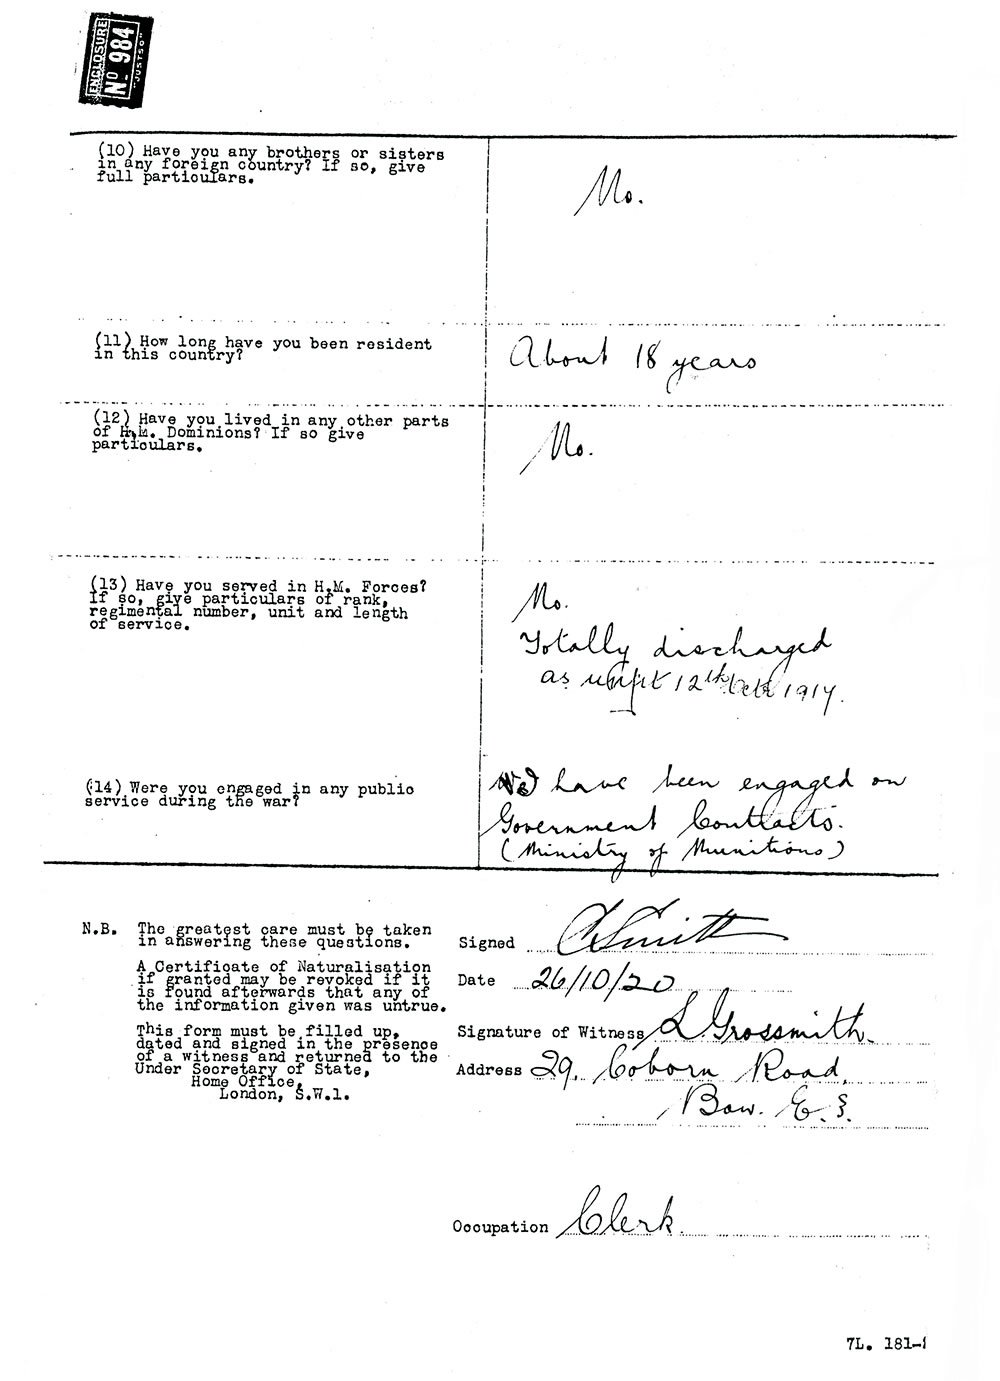 ENCLOSURE
No 984
"JUSTSO"
(10) Have you any brothers or sisters
in any foreign country? If so, give
full particulars.
No.
(11) How long have you been resident
in this country?
About 18 years
(12) Have you lived in any other parts
of H.M. Dominions? If so give
particulars.
No.
(13) Have you served in H.M. Forces?
If so, give particulars of rank,
regimental number, unit and length
of service.
No.
Totally discharged
as unfit 12th Octr 1917.
(14) Were you engaged in any public
service during the war?
have been engaged on
Government Contracts.
(Ministry of Munitions)
N.B. The greatest care must be taken
in answering these questions.
A Certificate of Naturalisation
if granted may be revoked if it
is found afterwards that any of
the information given was untrue.
This form must be filled up,
dated and signed in the presence
of a witness and returned to the
Under Secretary of State,
Home Office,
London, S.W.1.
Signed Smith
Date 26/10/20
Signature of Witness L. Grossmith.
Address 29, Coborn Road,
Bow. E.3.
Occupation Clerk.
7L. 181-1